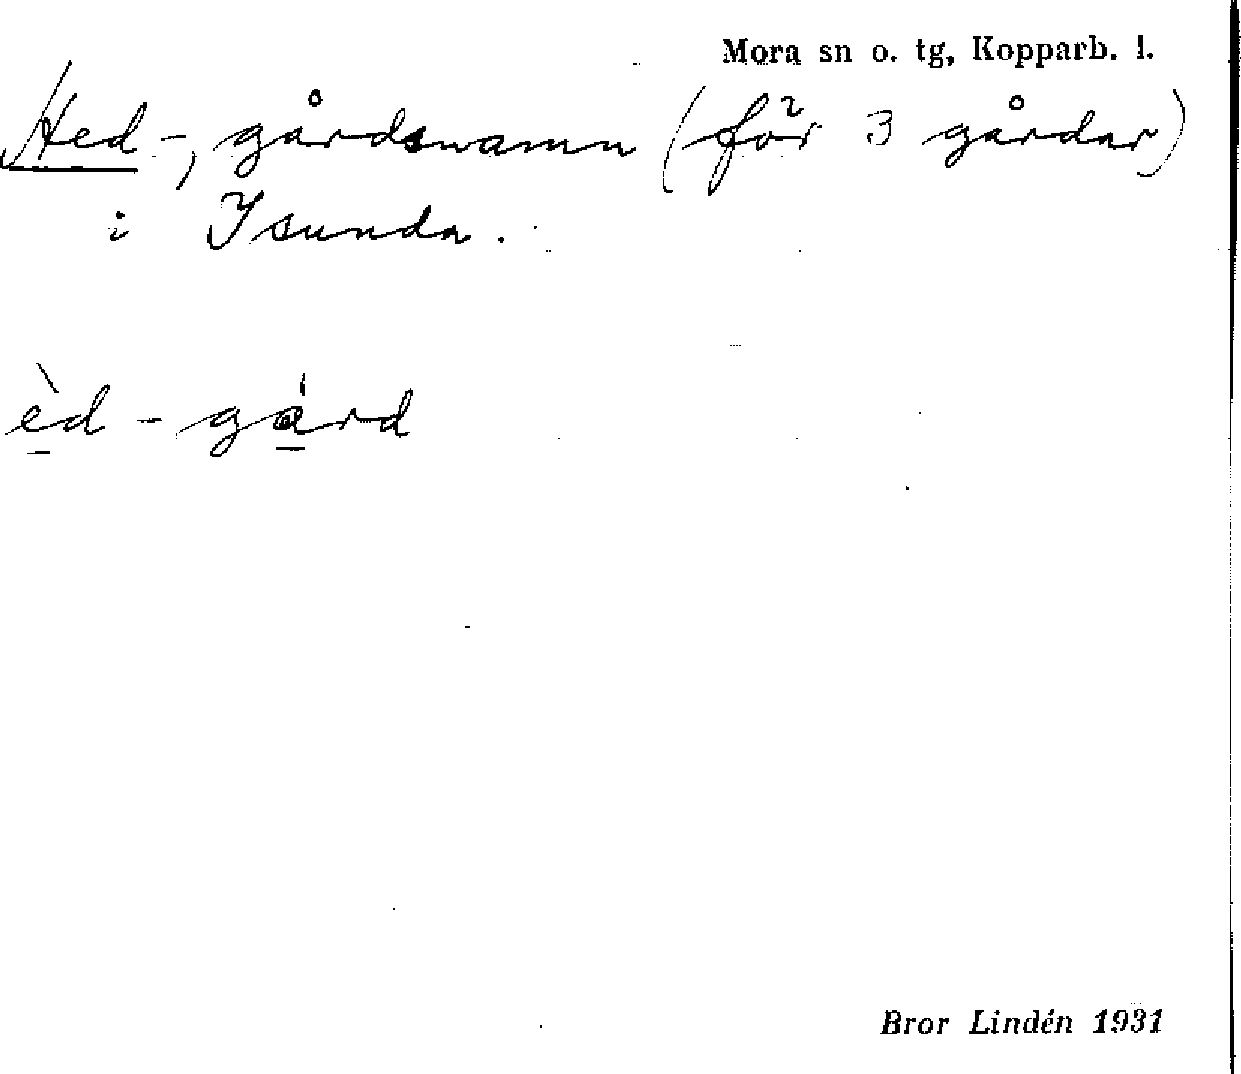 Mora sn o. tg, Kopparb. l.
Hed-, gårdsnamn (för 3 gårdar)
i Isunda.
èd - gárd
Bror Lindén 1931